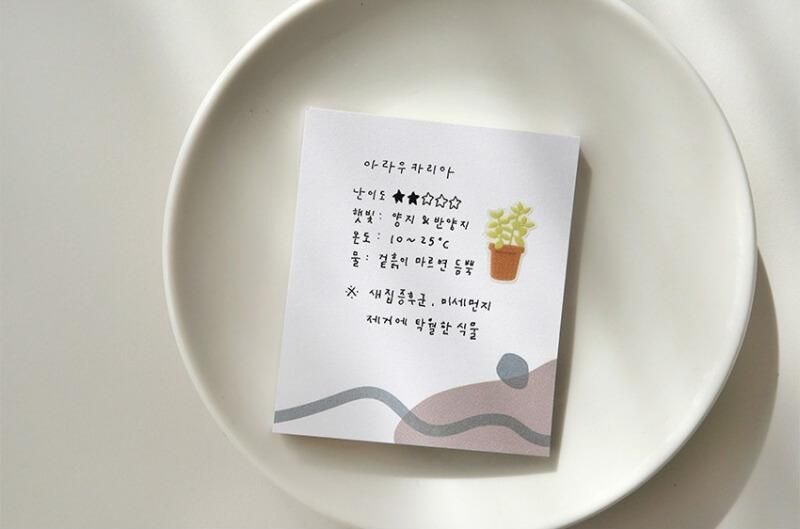 아라우카리아
난이도 ★★☆☆☆
햇빛 : 양지 & 반양지
온도 : 10~25°C
물 : 겉흙이 마르면 듬뿍
※ 새집증후군, 미세먼지
제거에 탁월한 식물